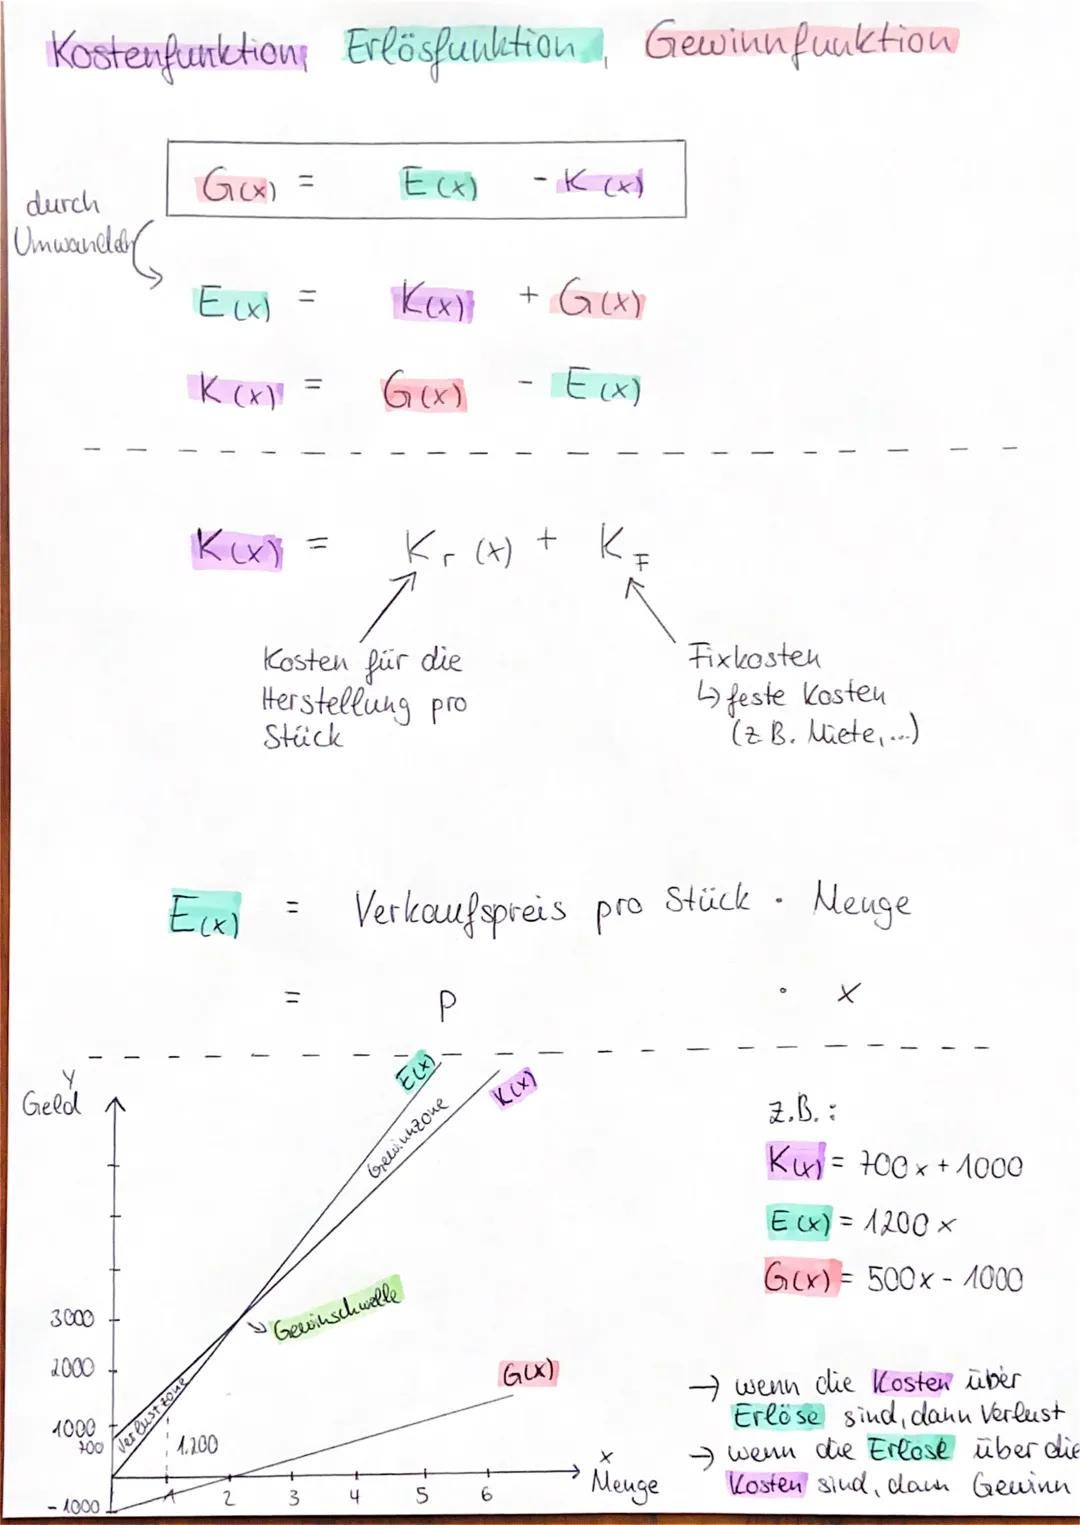 Kostenfunktion, Erlösfunktion, Gewinnfunktion
G(x) = E(x) - K(x)
durch
Umwandeln
E(x) = K(x) + G(x)
K(x) = G(x) - E(x)
K(x) = Kr (x) + KF
Kosten für die
Herstellung pro
Stück
Fixkosten
↳ feste Kosten
(z.B. Miete,...)
E(x) = Verkaufspreis pro Stück · Menge
= p · x
y
Geld
E(x)
K(x)
Gewinnzone
Gewinschwelle
Verlustzone
G(x)
3000
2000
1000
700
-1000
1.200
1 2 3 4 5 6
x
Menge
z.B.:
K(x) = 700x + 1000
E(x) = 1200x
G(x) = 500x - 1000
→ wenn die Kosten über
Erlöse sind, dann Verlust
→ wenn die Erlöse über die
Kosten sind, dann Gewinn